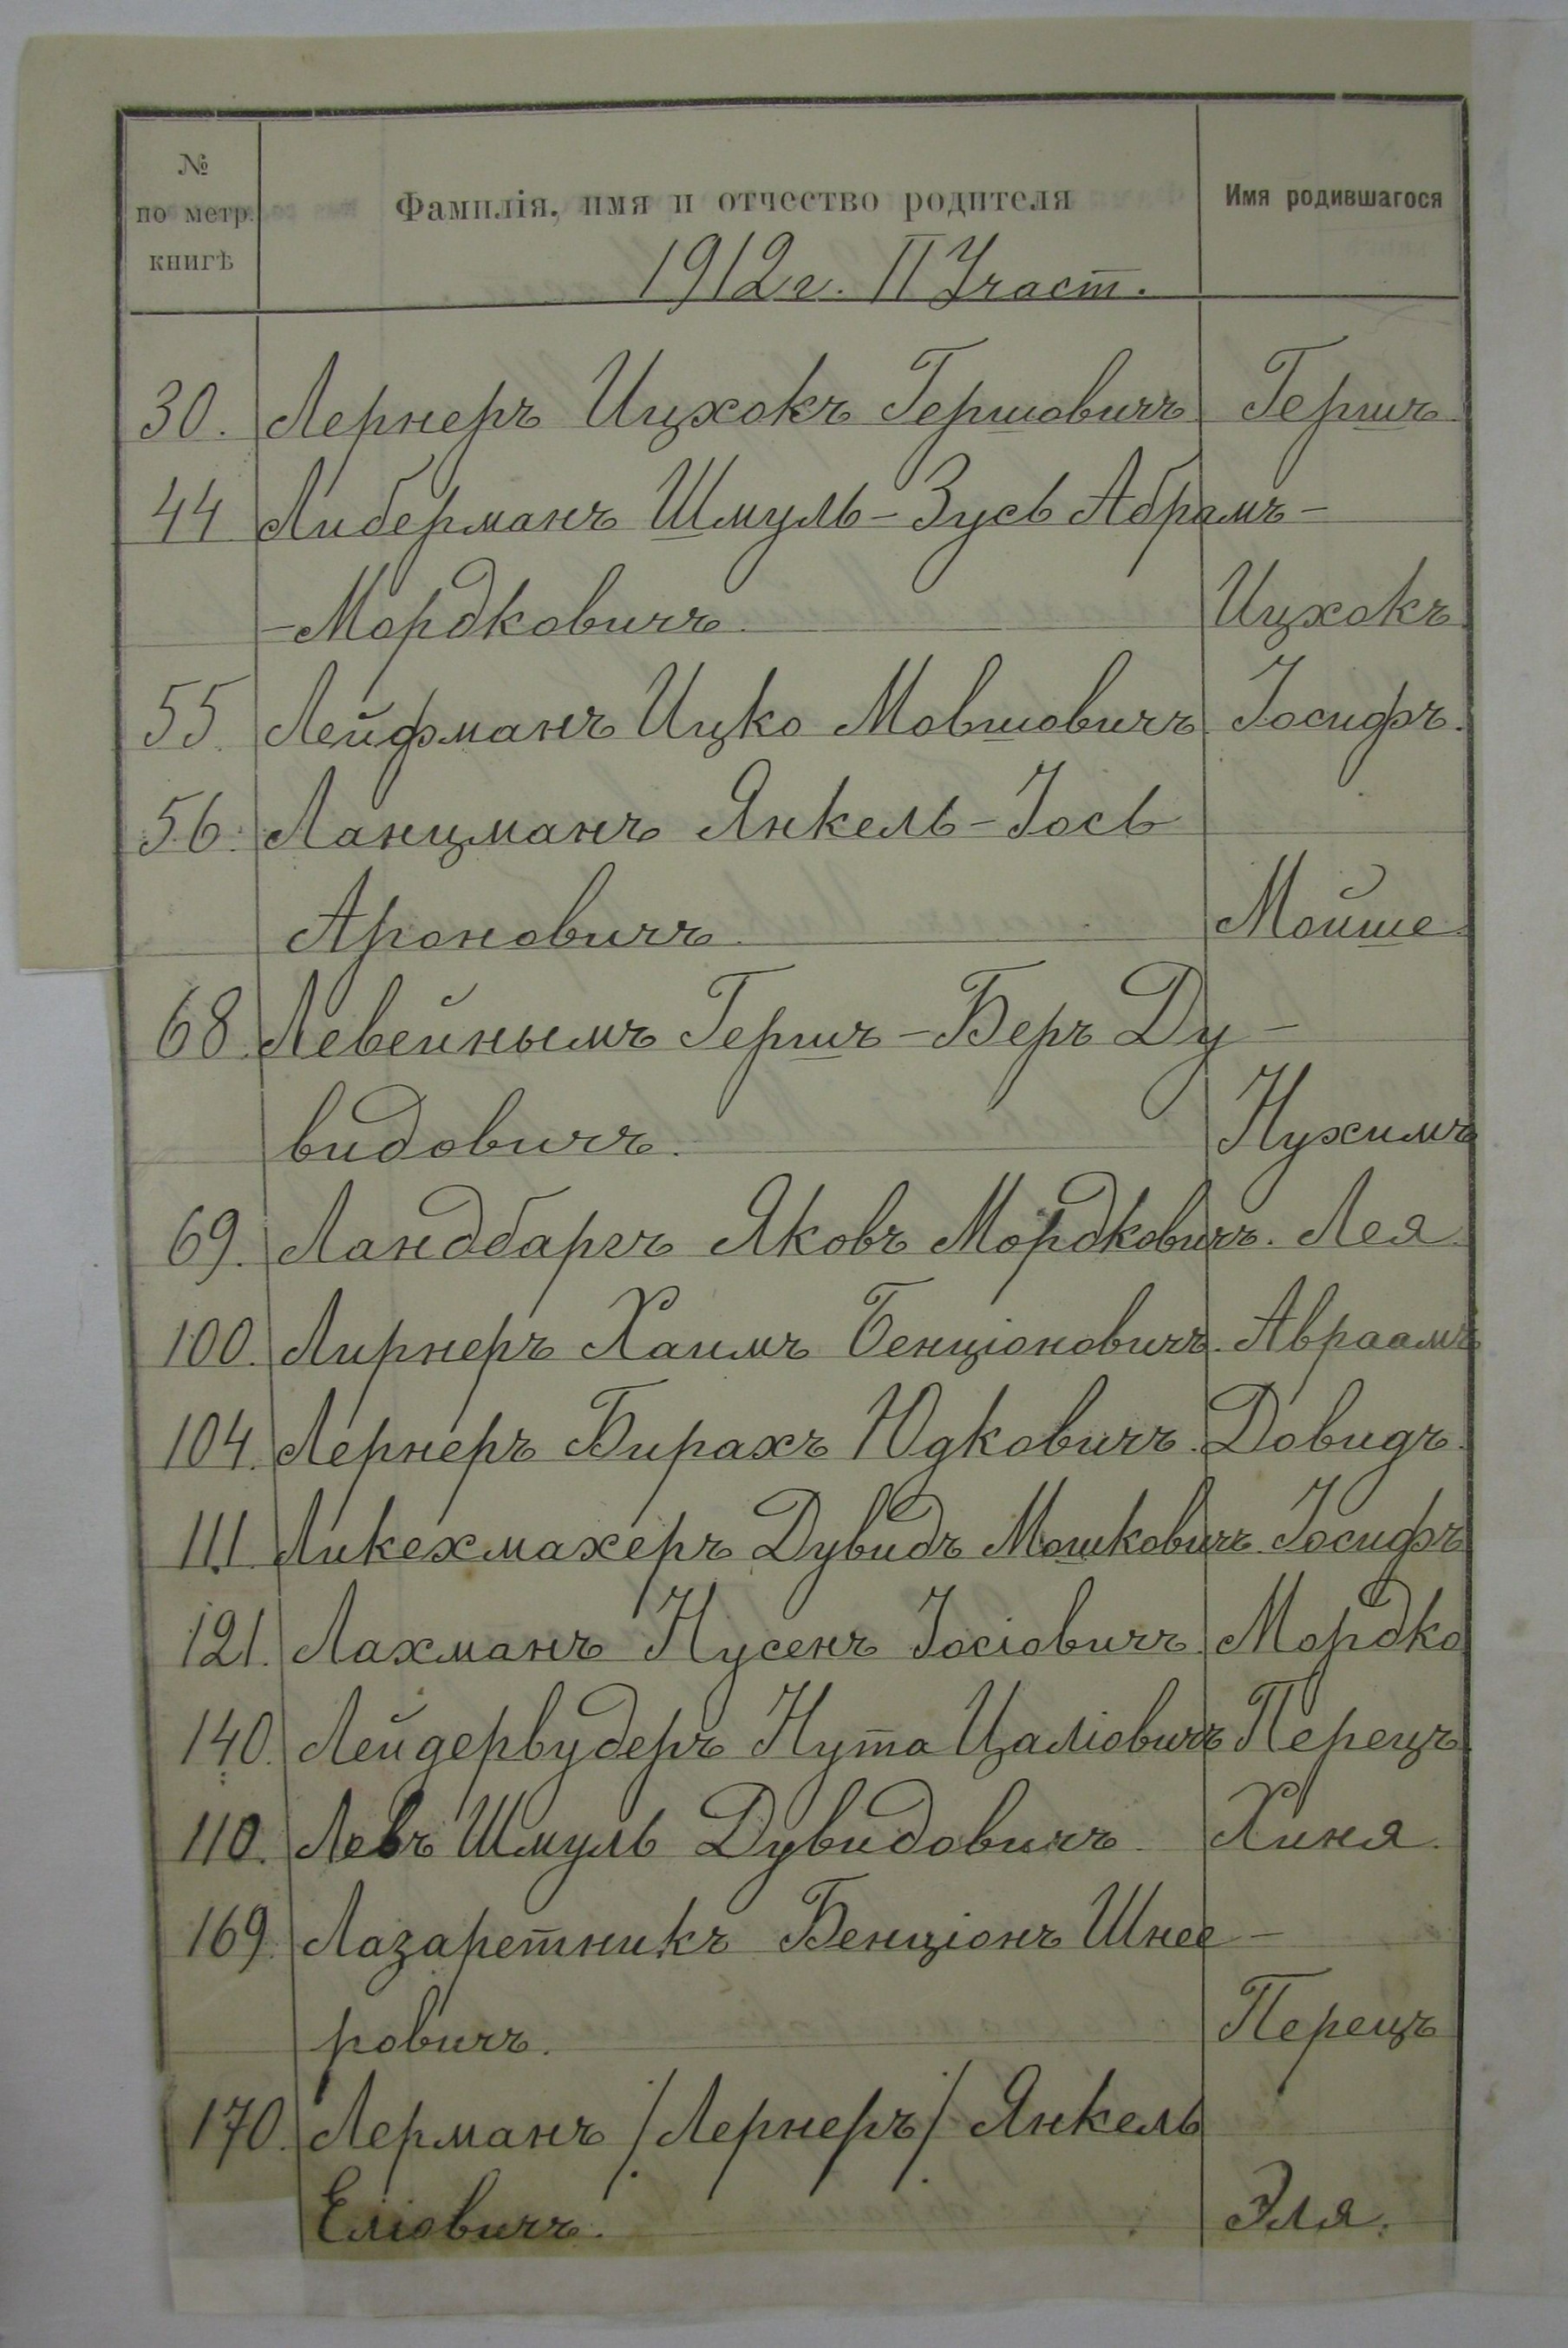 №
по метр.
книгѣ
Фамилія, имя и отчество родителя
Имя родившагося
1912 г. II Участ.
30. Лернеръ Ицхокъ Гершовичъ Гершъ
44 Либерманъ Шмуль-Зусь Абрамъ-
-Мордковичъ. Ицхокъ.
55. Лейфманъ Ицко Мовшовичъ. Іосифъ.
56. Ланцманъ Янкель-Іось
Ароновичъ. Мойше.
68. Левейнымъ Гершъ-Беръ Ду-
видовичъ. Нухимъ
69. Ландбаргъ Яковъ Мордковичъ. Лея.
100. Лирнеръ Хаимъ Бенціоновичъ. Авраамъ
104. Лернеръ Бирахъ Юдковичъ. Довидъ.
111. Ликехмахеръ Дувидъ Мошковичъ. Іосифъ
121. Лахманъ Нусенъ Іосіовичъ. Мордко
140. Лейдервудеръ Нута Цаліовичъ Перецъ.
110. Левъ Шмуль Дувидовичъ. Хиня.
169. Лазаретникъ Бенціонъ Шнее-
ровичъ. Перецъ
170. Лерманъ /Лернеръ/ Янкель
Еліовичъ. Эля.